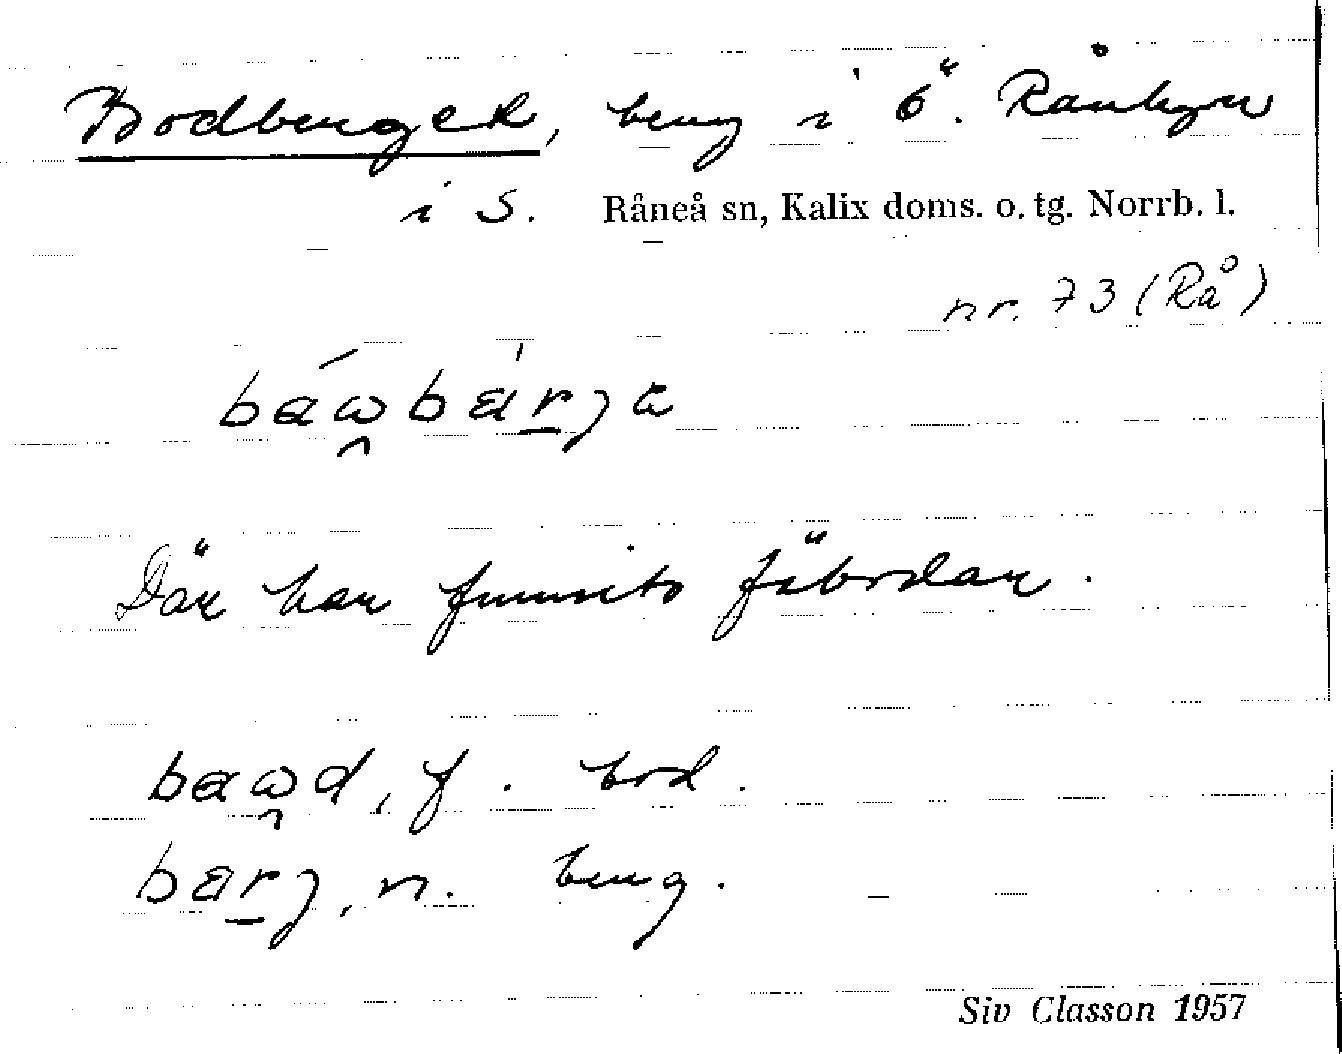 Bodberget, berg i ö. Rånbyn
i S. Råneå sn, Kalix doms. o. tg. Norrb. l.
nr. 73 (Rå)
Där har funnits fäbodar.
bawd, f. bod.
barj, n. berg.
Siv Classon 1957